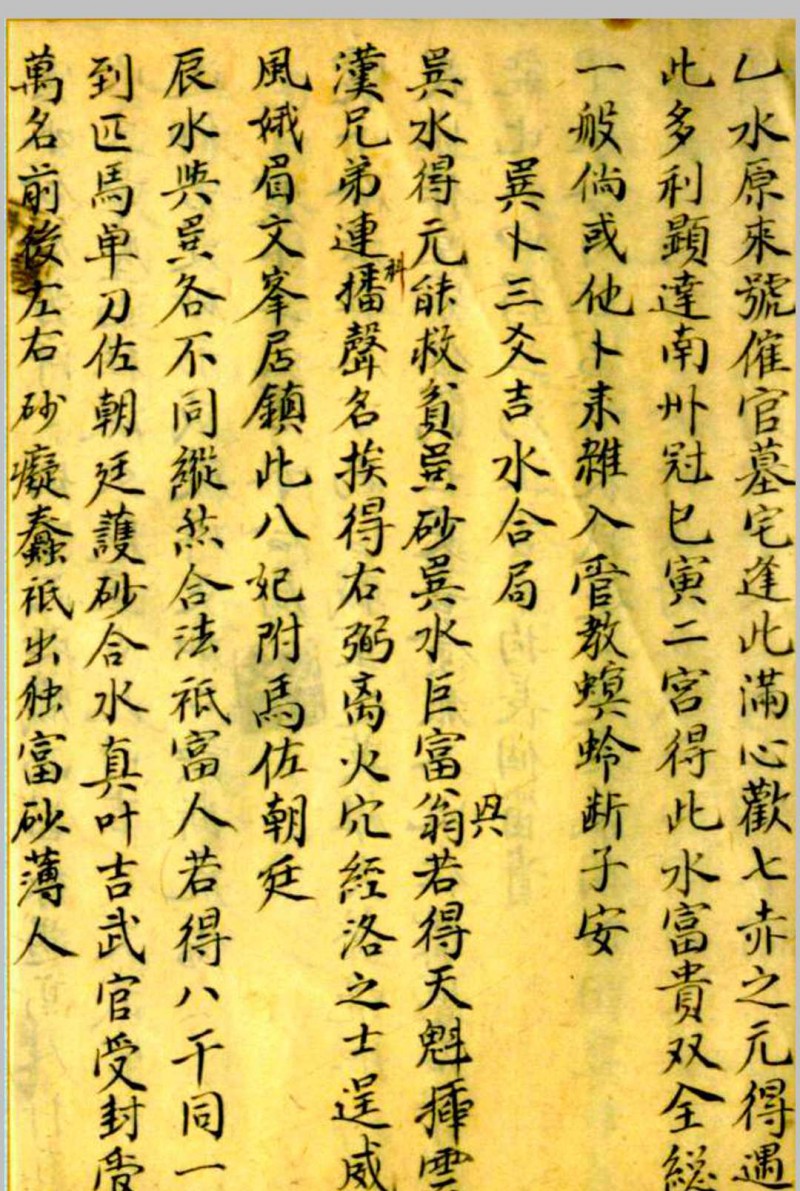 乙水原來號催官墓宅逢此滿心歡七赤之元得遇
此多利顕達南州冠巳寅二宮得此水富貴双全総
一般倘或他卜来雜入管教螟蛉断子安
巽卜三爻吉水合局
巽水得元能救貧巽砂巽水巨富翁若得天魁插雲
巽
漢兄弟連播聲名挨得右弼离火穴經洛之士逞威
科
風娥眉文峯居鎮此八妃附馬佐朝廷
辰水與巽各不同縱然合法祇富人若得八干同一
到匹馬单刀佐朝廷護砂合水真叶吉武官受封
萬名前後左右砂癡蠢祗出独富砂薄人